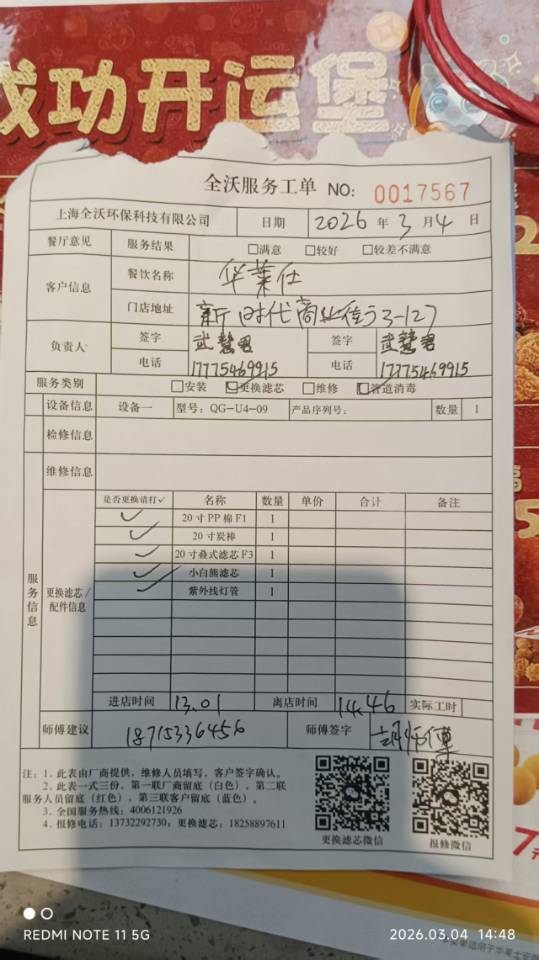 成功开运堡
全沃服务工单 NO: 0017567
上海全沃环保科技有限公司 日期 2026 年 3 月 4 日
餐厅意见 服务结果 □满意 □较好 □较差不满意
客户信息 餐饮名称 华莱仕
门店地址 新时代商业街3-127
负责人 签字 武慧君 签字 武慧君
电话 17775469915 电话 17775469915
服务类别 □安装 ☑更换滤芯 □维修 ☑管道消毒
设备信息 设备一 型号: QG-U4-09 产品序列号: 数量 1
检修信息
维修信息
服务信息
更换滤芯/配件信息
是否更换请打✓ 名称 数量 单价 合计 备注
✓ 20寸PP棉F1 1
✓ 20寸炭棒 1
✓ 20寸叠式滤芯F3 1
✓ 小白熊滤芯 1
✓ 紫外线灯管 1
进店时间 13.01 离店时间 14.46 实际工时
师傅建议 18715336456 师傅签字 胡师傅
注: 1. 此表由厂商提供, 维修人员填写, 客户签字确认。
2. 此表一式三份, 第一联厂商留底(白色), 第二联
服务人员留底(红色), 第三联客户留底(蓝色)。
3. 全国服务热线: 4006121926
4. 报修电话: 13732292730, 更换滤芯: 18258897611
更换滤芯微信 报修微信
REDMI NOTE 11 5G 2026.03.04 14:48